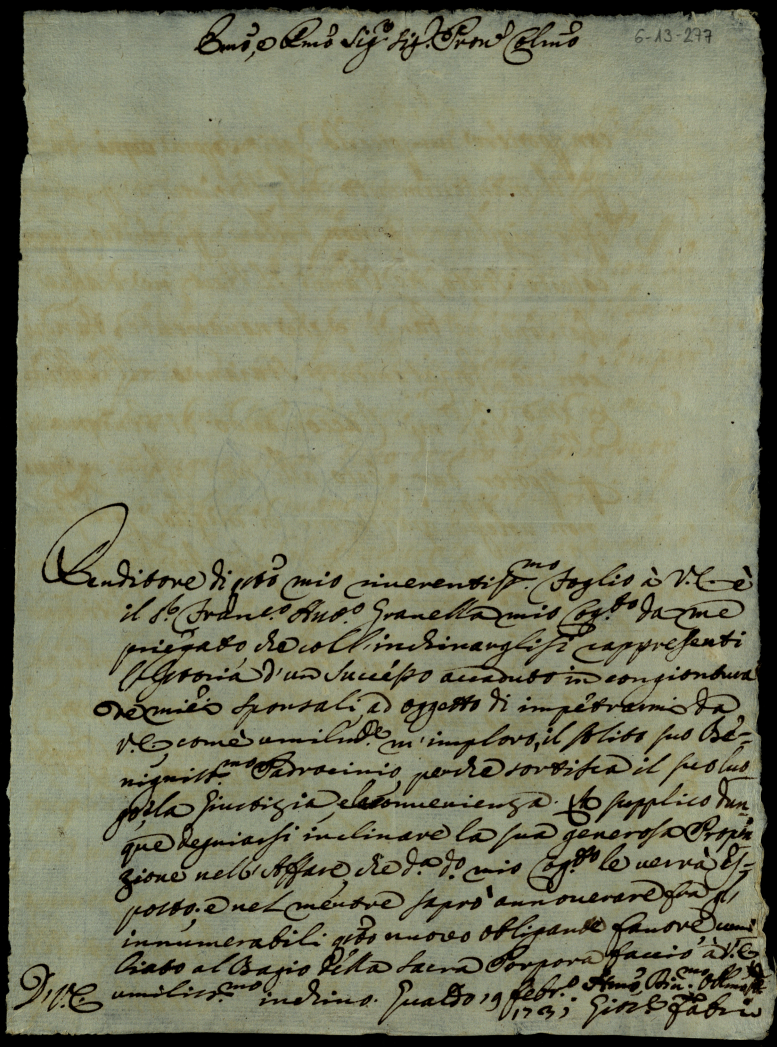 Emo, e Rmo Sig.re Sig.r Pron.e Colmo
6-13-277
Renditore di qto mio riverentiss.mo foglio à V.E. è
il Sr. Franc.o Ant.o Granella mio Cog.to da me
priegato che coll'inchinarglisi rappresenti
l'Istoria d'un successo accaduto in congiontura
de miei sponsali, ad oggetto di impetrarmi da
V.E. come umilm.te m'imploro, il solito suo Be-
nigniss.mo Padrocinio, perche sortisca il suo luo
go la Giustizia, e la convenienza. La supplico dun-
que degniarsi inclinare la sua generosa Propen
zione nell'Affare, che da do. mio Cog.to le verrà Es-
posto; e nel mentre saprò annoverare fra gl'
innumerabili qto nuovo obligante favore umi
liato al Bagio della Sacra Porpora faccio à V.E.
umiliss.mo inchino. Gualdo 19 febr.o 1731
D. V.E.
Umo Div.mo Obl.mo
Gios. Fabrii